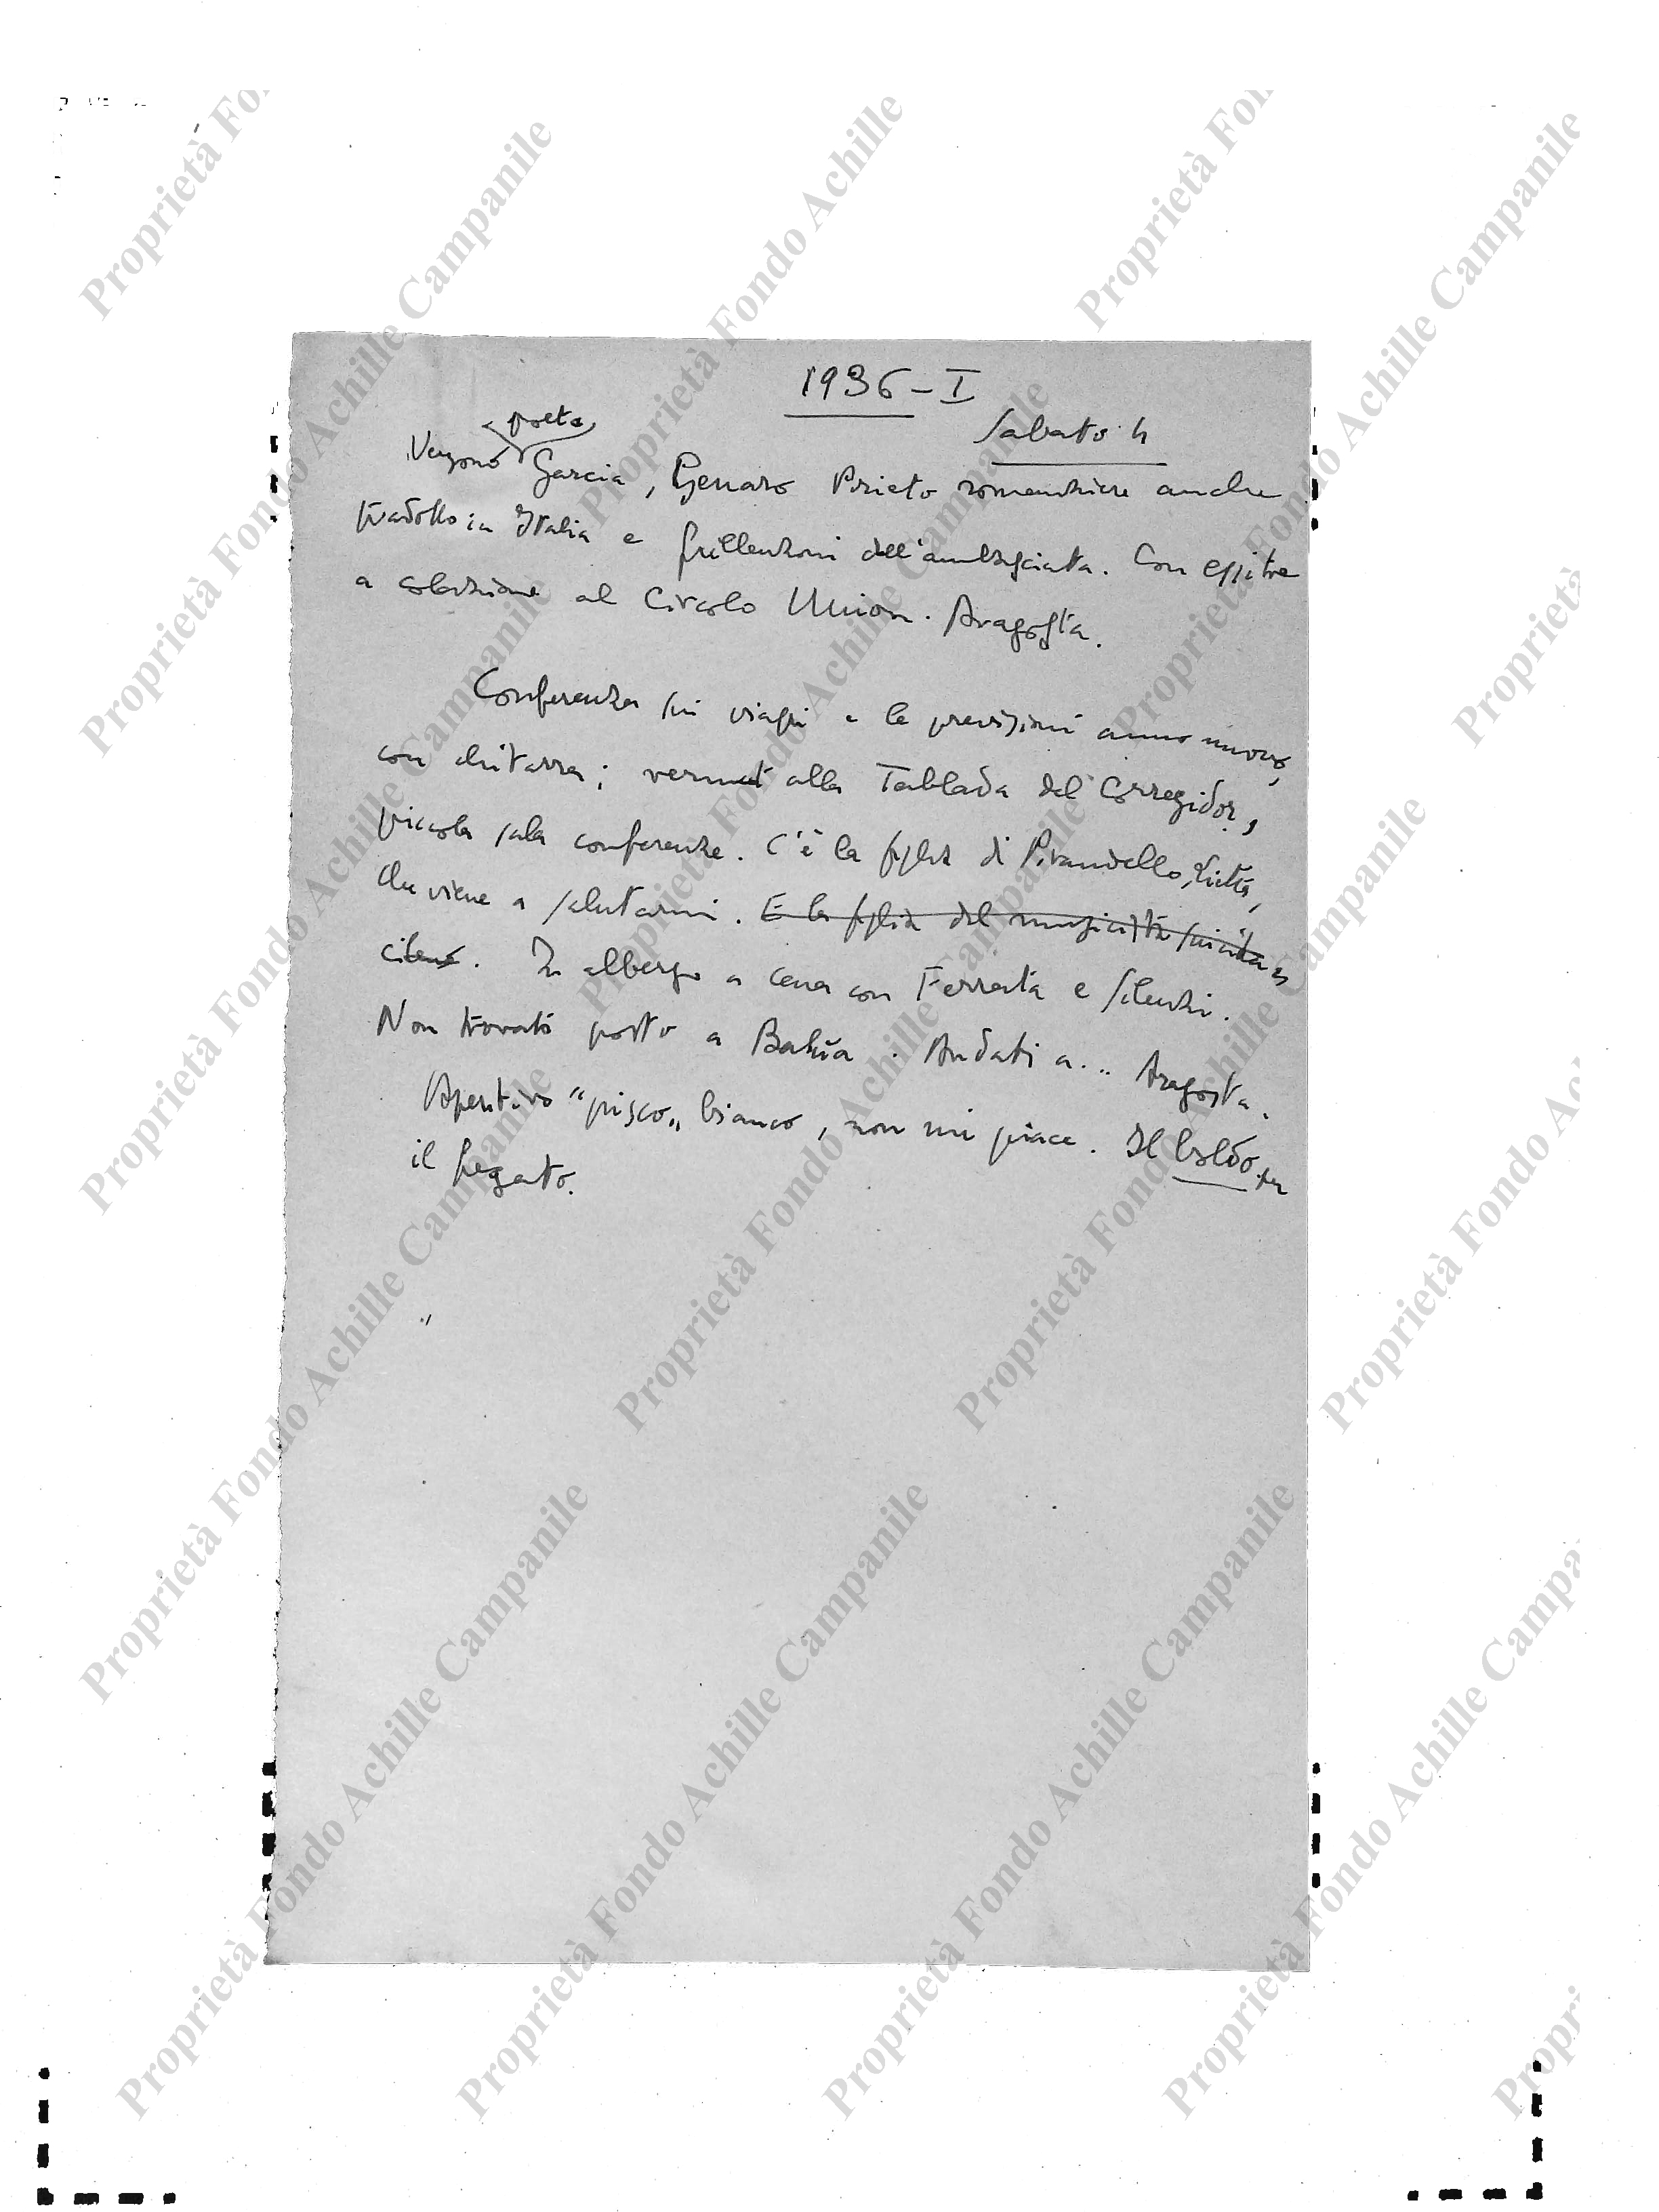 1936 - I
Sabato 4
poeta
Vengono Garcia, Genaro Prieto romanziere anche
tradotto in Italia e Grillenzoni dell'ambasciata. Con essi tre
a colazione al Circolo Union. Aragosta.
Conferenza sui viaggi e le previsioni anno nuovo,
con chitarra; vermut alla Tablada del Corregidor,
piccola sala conferenze. C'è la figlia di Pirandello, Lietta,
che viene a salutarmi. E la figlia del musicista suicida
cileno. In albergo a cena con Ferrata e Silenzi.
Non trovato posto a Bahia. Andati a... Aragosta.
Aperitivo "pisco„ bianco, non mi piace. Il boldo per
il fegato.
Proprietà Fondo Achille Campanile